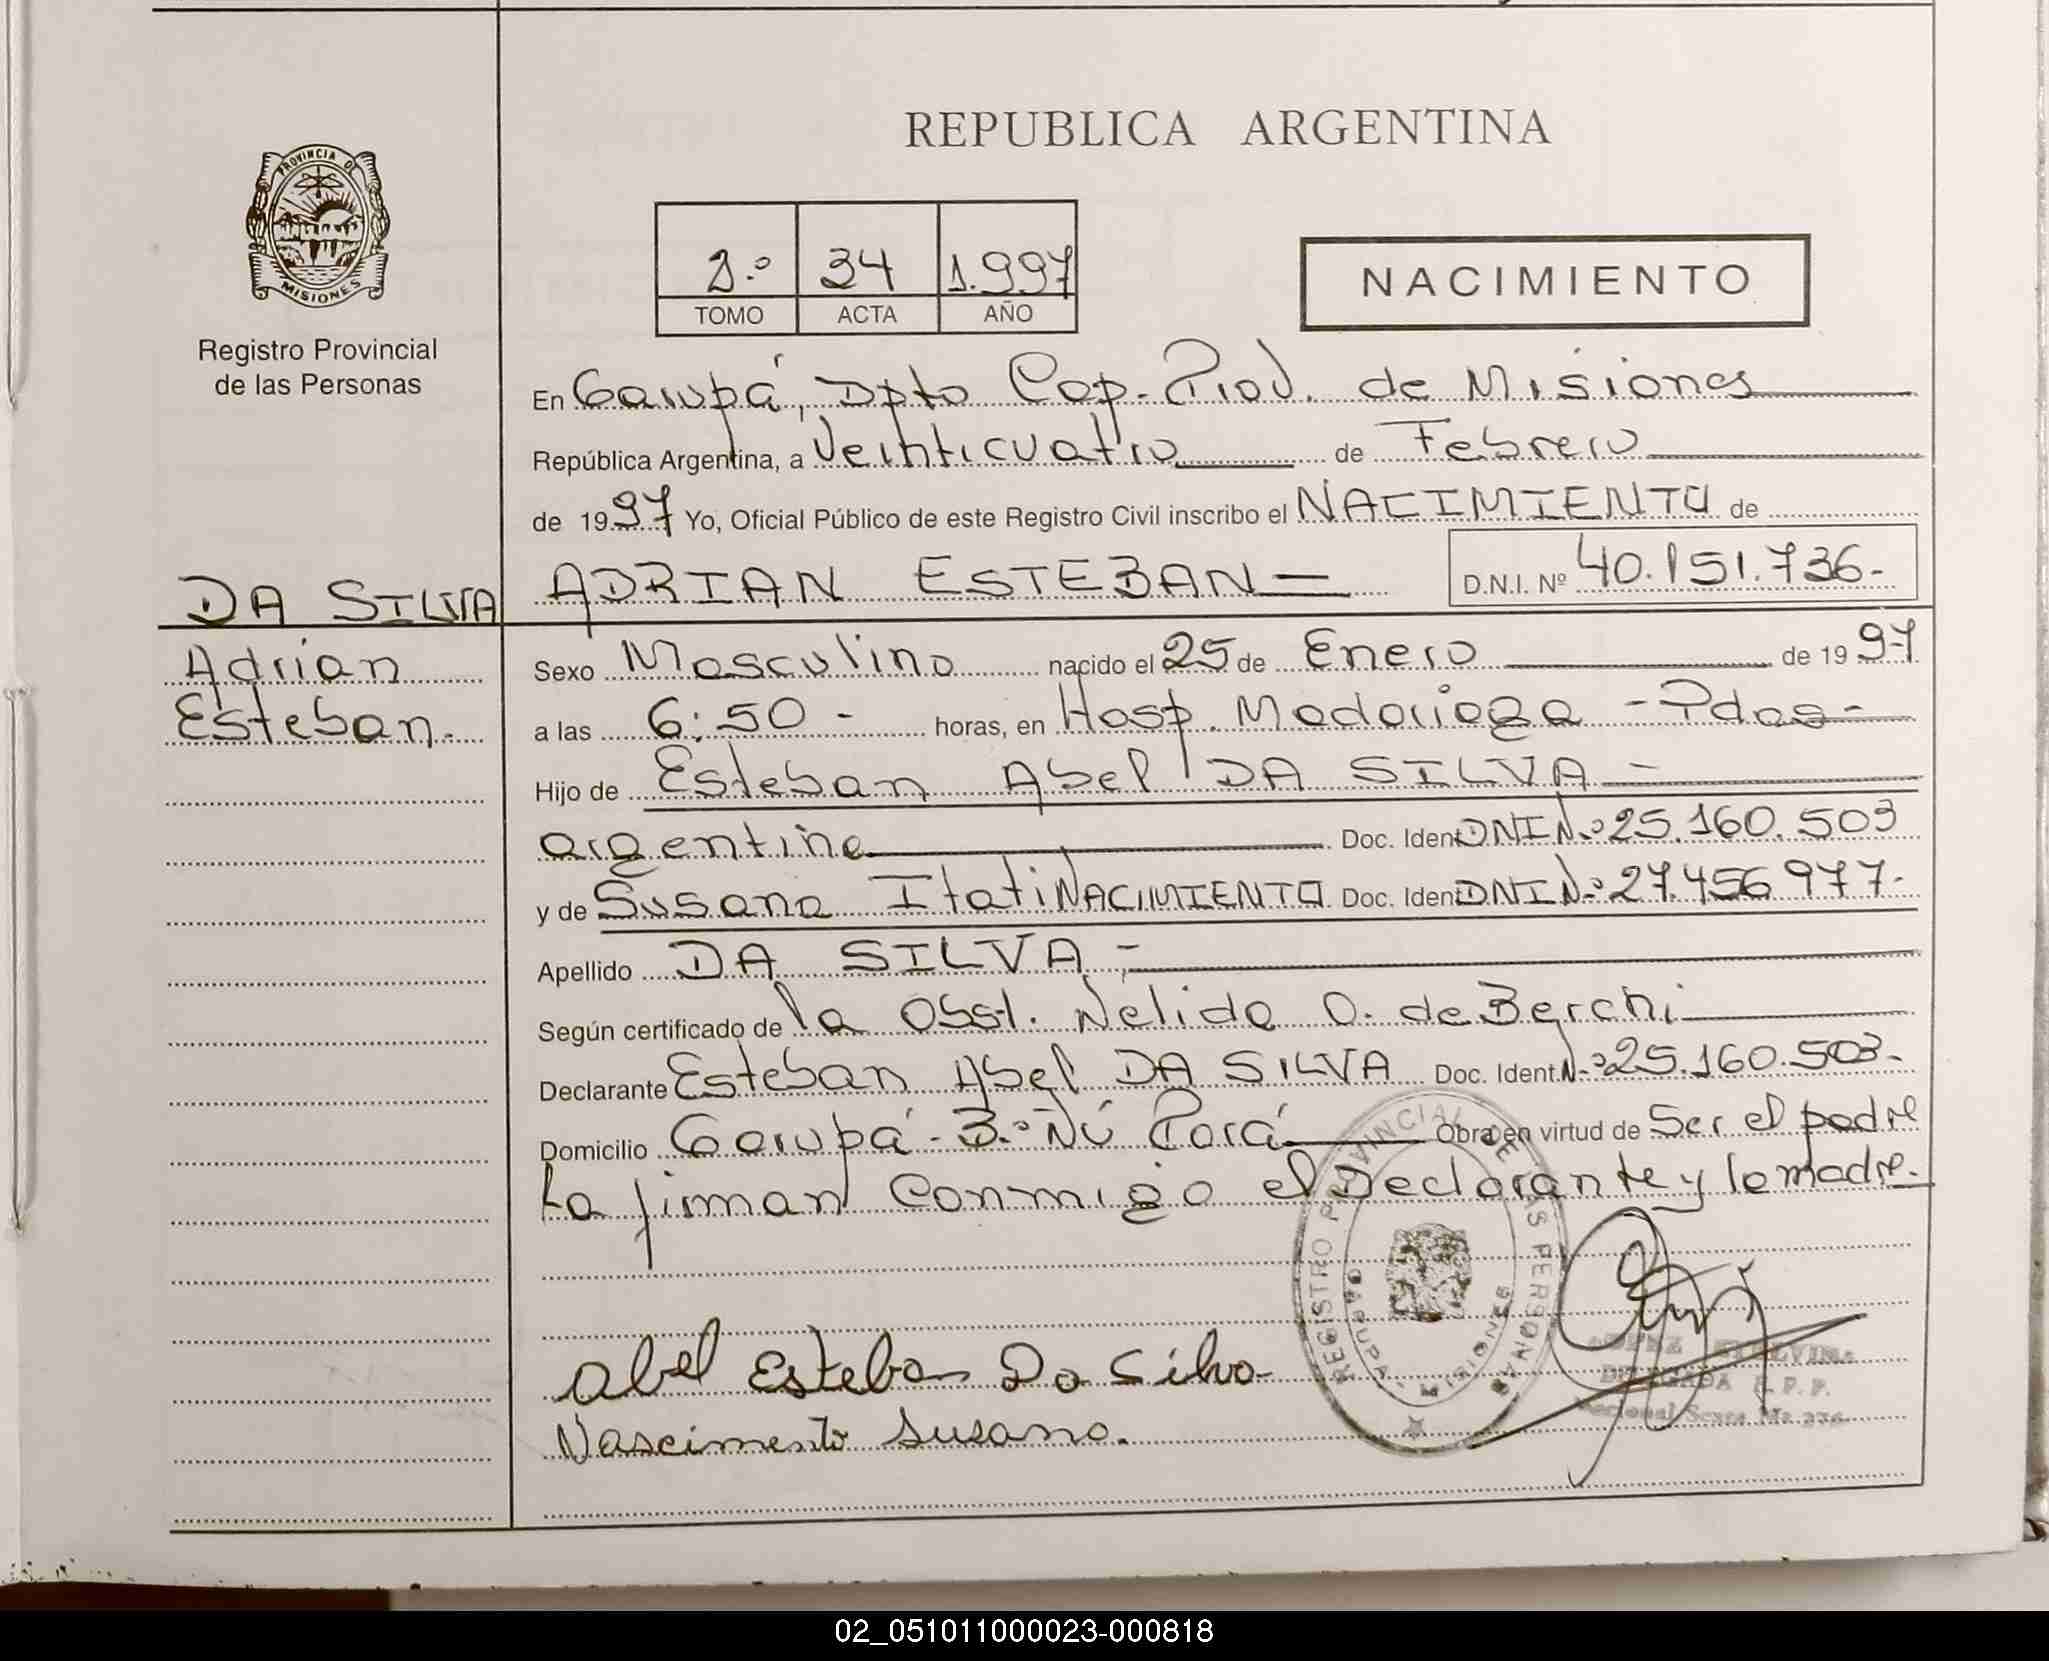 REPUBLICA ARGENTINA
PROVINCIA DE
MISIONES
Registro Provincial
de las Personas
2.º 34 1.997
TOMO ACTA AÑO
NACIMIENTO
En Garupá, Dpto Cap. Prov. de Misiones
República Argentina, a Veinticuatro de Febrero
de 1997 Yo, Oficial Público de este Registro Civil inscribo el NACIMIENTO de
DA SILVA ADRIAN ESTEBAN D.N.I. Nº 40.151.736-
Adrian
Esteban.
Sexo Masculino nacido el 25 de Enero de 1997
a las 6:50 - horas, en Hosp. Madariaga - Pdas -
Hijo de Esteban Abel DA SILVA -
argentino Doc. Ident DNI N.º 25.160.503
y de Susana Itati NACIMIENTO Doc. Ident DNI N.º 27.456.977-
Apellido DA SILVA -
Según certificado de la Obst. Nélida O. de Berchi
Declarante Esteban Abel DA SILVA Doc. Ident. N.º 25.160.503-
Domicilio Garupá - B.º Ñú Porá Obra en virtud de Ser el padre
La firman conmigo el Declarante y la madre.
REGISTRO PROVINCIAL DE LAS PERSONAS
GARUPA MISIONES
Abel Esteban Da Silva
Nascimento Susana.
DELEGADA R. P. P.
02_051011000023-000818